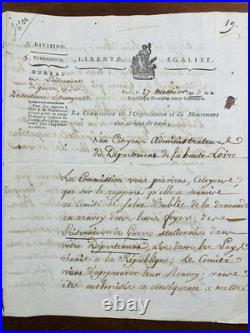 19.
3 DIVISION.
SUBDIVISION.
LIBERTÉ
ÉGALITÉ.
BUREAU
des Prisonniers
de guerre
Déserteurs étrangers
Paris, 27 messidor
République Française une et indivisible.
La Commission de l'Organisation et du Mouvement
des Armées de terre,
Aux Citoyens Administrateurs
du Département de la haute Loire
La Commission vous prévient, Citoyens
que sur le rapport qu'elle a soumis
au Comité de Salut Public de la demande
en renvoy dans leurs foyers, de
Prisonniers de Guerre
Votre Département, dans les Pays
réunis à la République; le Comité
vient d'approuver leur Renvoy; vous
êtes autorisés en conséquence à mettre